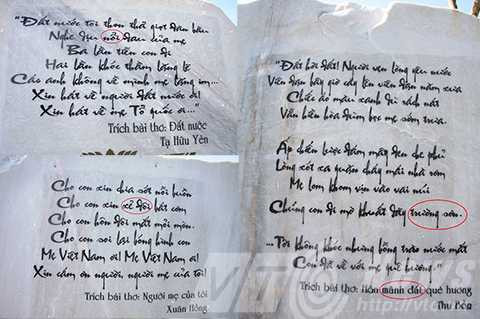 "Đất nước tôi thon thả giọt đàn bầu
Nghe dịu nổi đau của mẹ
Ba lần tiễn con đi
Hai lần khóc thầm lặng lẽ
Các anh không về mình mẹ lặng im...
Xin hát về người đất nước ơi!
Xin hát về mẹ Tổ quốc ơi..."
Trích bài thơ: Đất nước
Tạ Hữu Yên
Cho con xin chia sớt nỗi buồn
Cho con xin xẻ đôi bát cơm
Cho con hôn đôi mắt mỏi mòn
Cho con soi lại bóng hình con
Mẹ Việt Nam ơi! Mẹ Việt Nam ơi!
Xin cám ơn người, người mẹ của tôi!
Trích bài thơ: Người mẹ của tôi
Xuân Hồng
"Đất hỡi đất! Người vẹn lòng yêu nước
Vẫn đâu bây giờ cây lên vẫn đâu năm xưa
Chiếc áo màu xanh đi rách nát
Vẫn hiền hòa đùm bọc mẹ sớm trưa.
Áp chiến lược đám mây đen che phủ
Lòng xót xa quân chảy mái nhà rơm
Mẹ lom khom vịn vào vai núi
Chúng con đi mờ khuất dãy trường sơn.
...Tôi không khóc nhưng bỗng trào nước mắt
Con đã về với mẹ quê hương."
Trích bài thơ: Hôn mãnh đất quê hương
Thu Bồn
VTC NEWS
http://vtc.